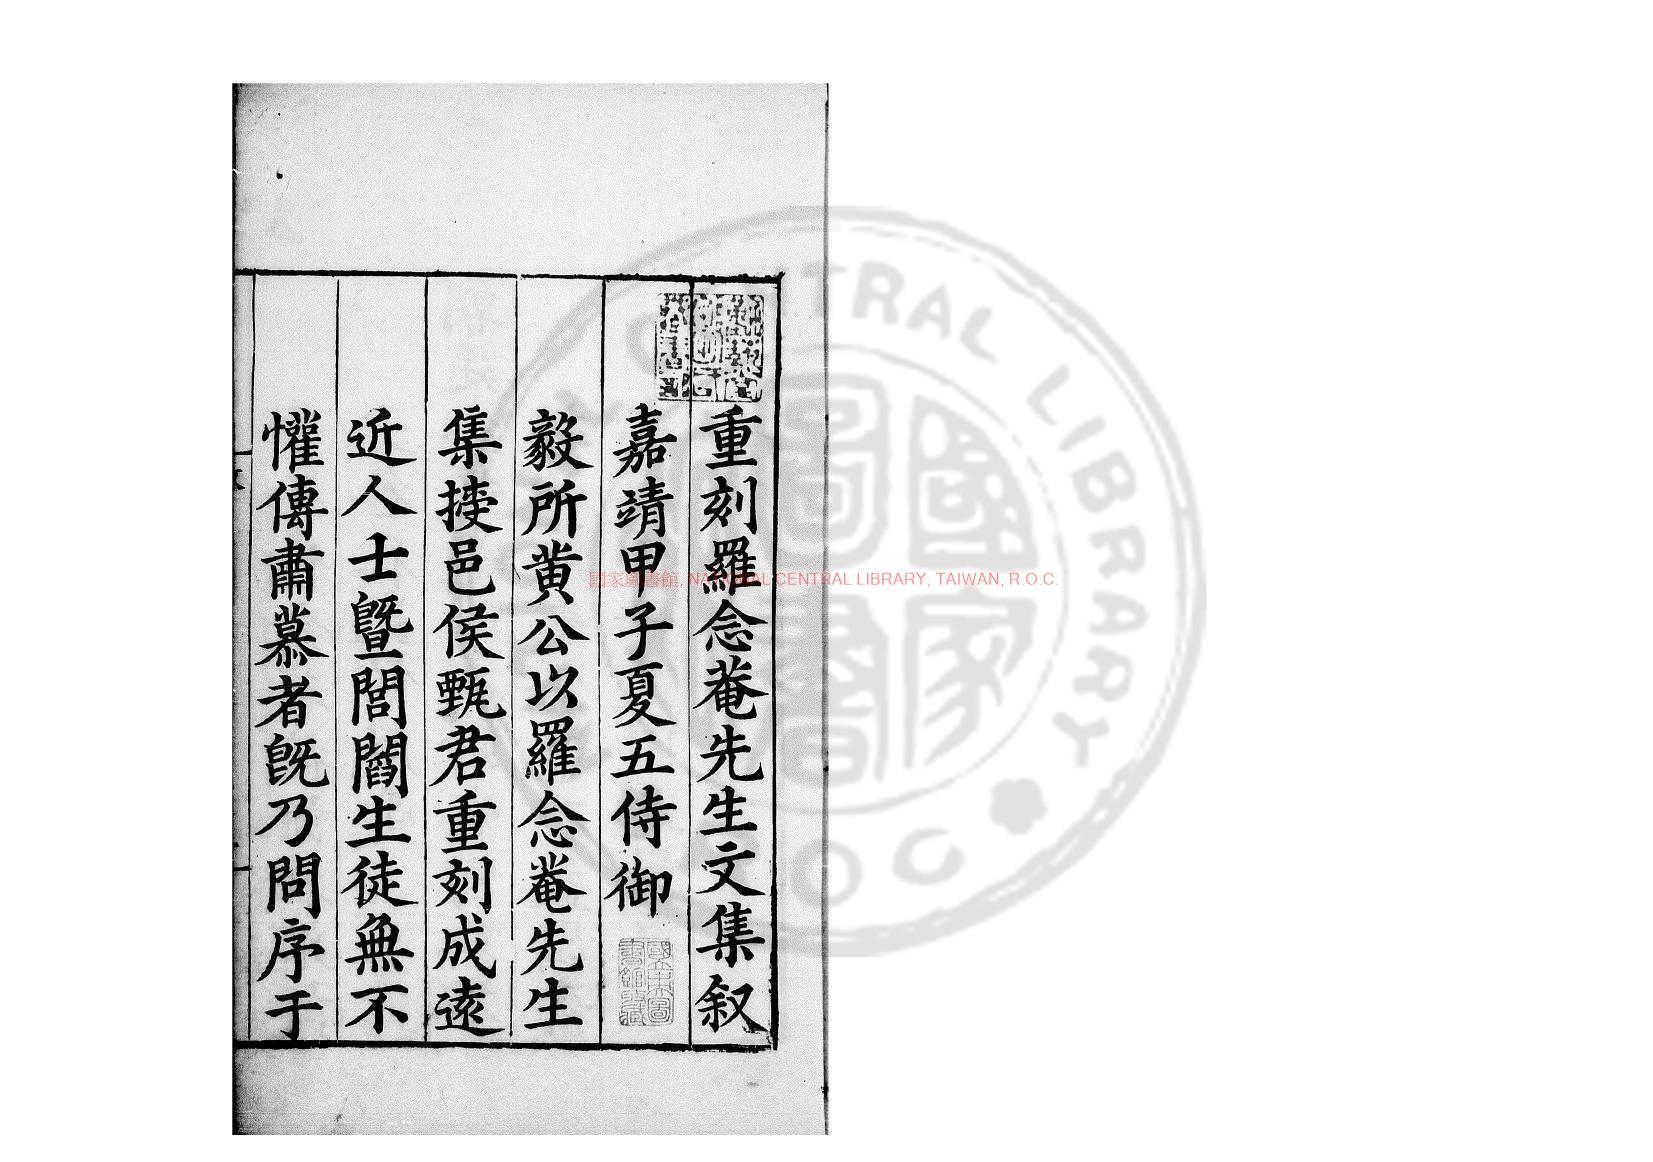 重刻羅念菴先生文集叙
嘉靖甲子夏五侍御
毅所黃公以羅念菴先生
集㨗邑侯甄君重刻成遠
近人士曁閭閻生徒無不
懽傳肅慕者旣乃問序于
國立中央圖書館收藏
國家圖書館, NATIONAL CENTRAL LIBRARY, TAIWAN, R.O.C.